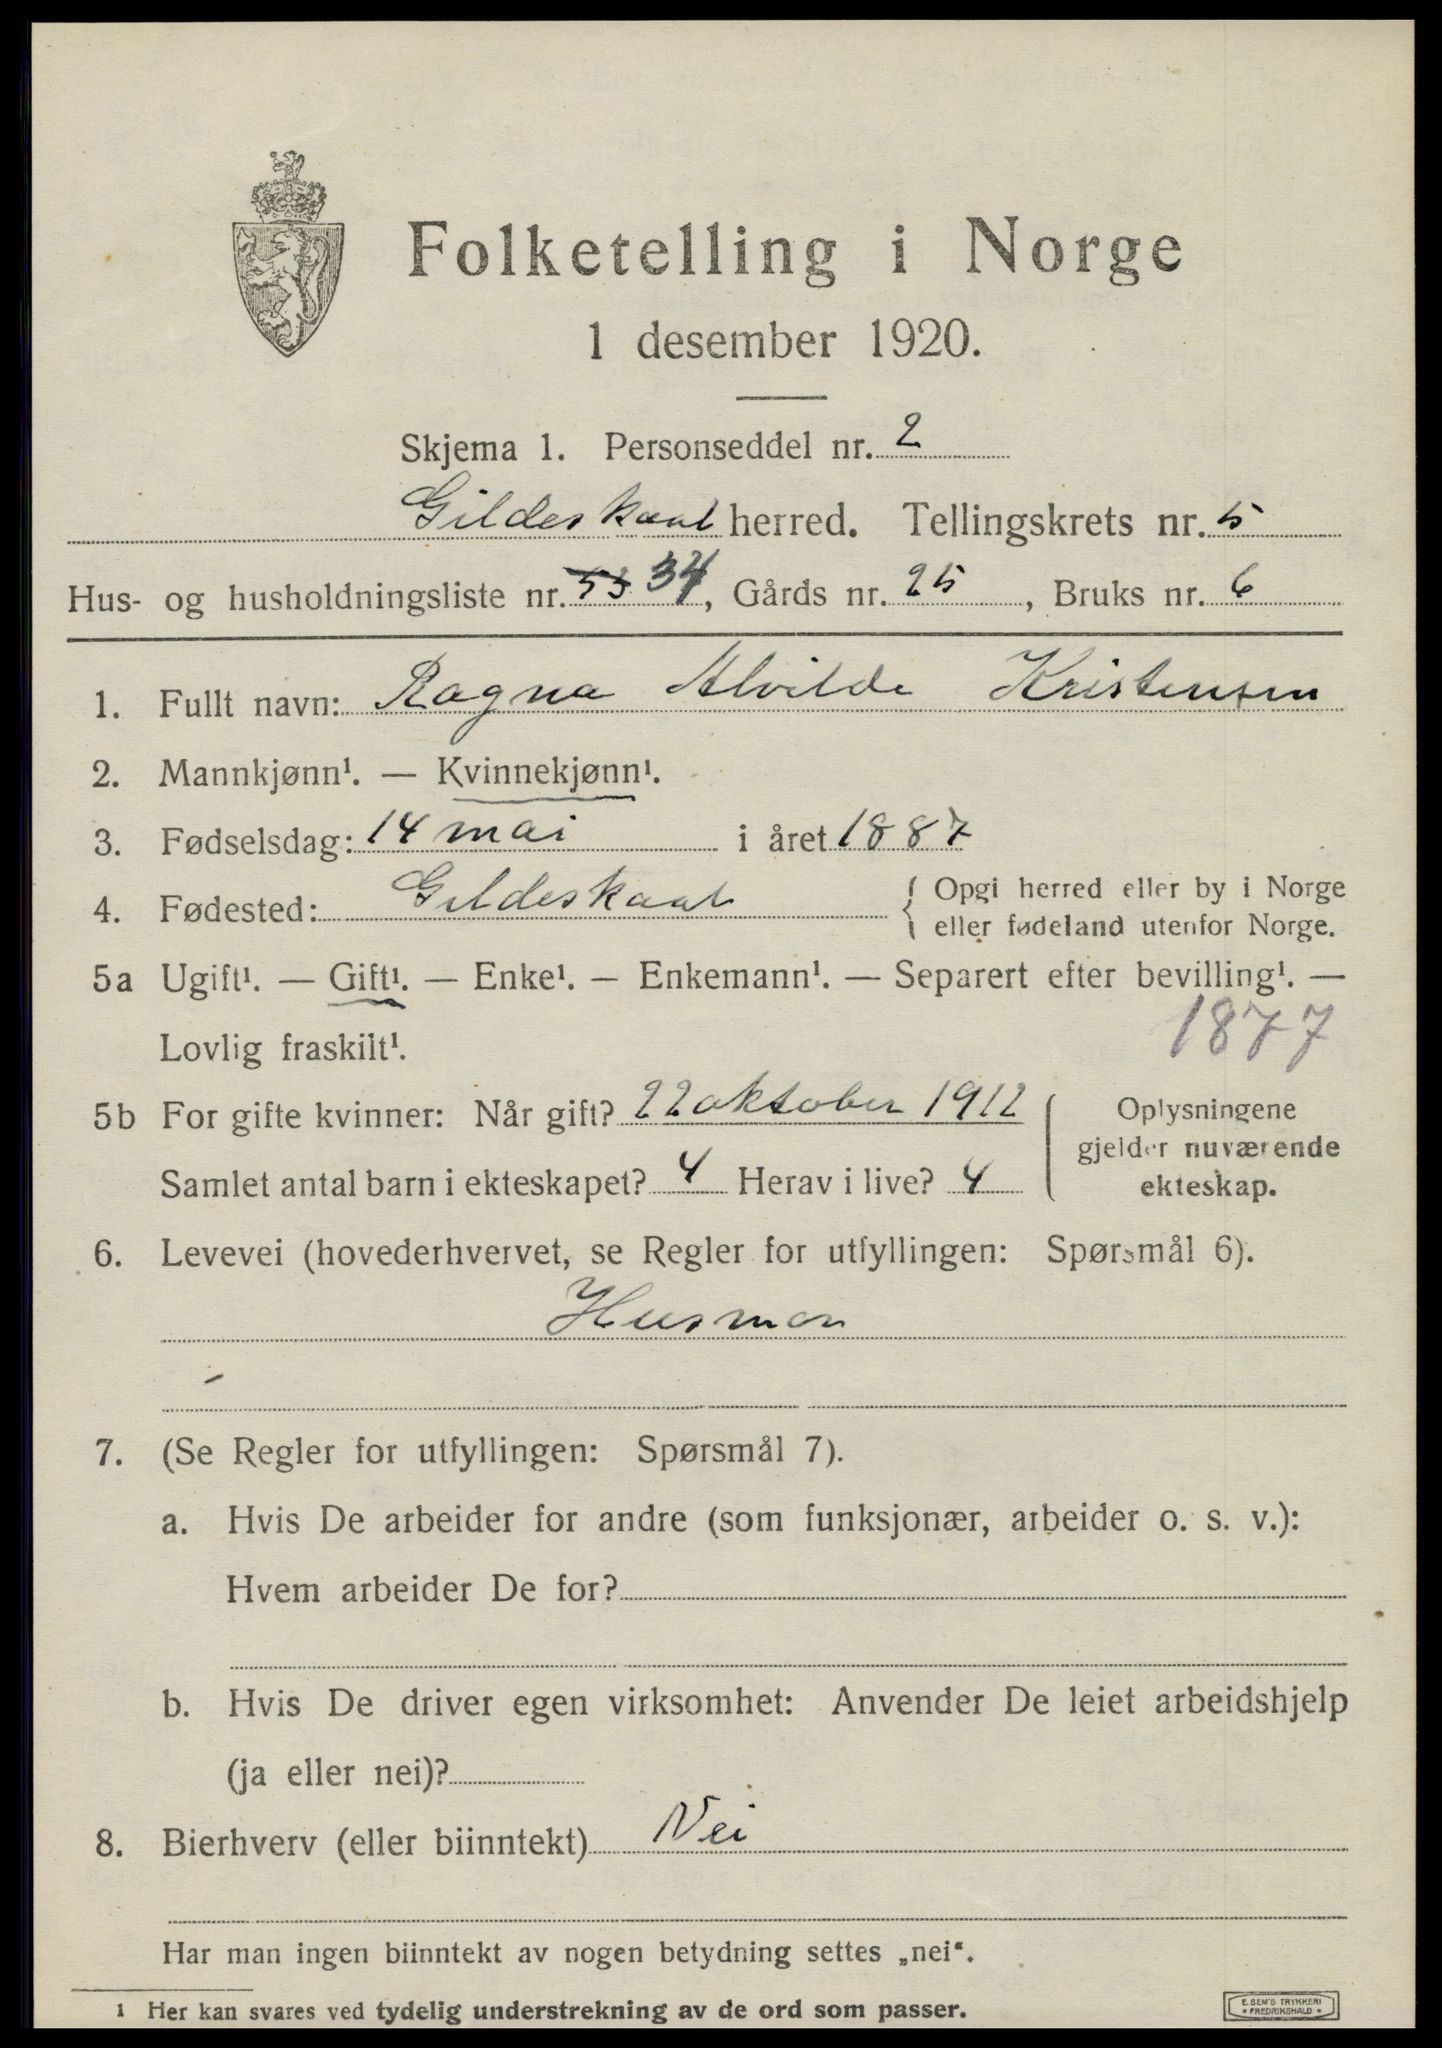 Folketelling i Norge
1 desember 1920.
Skjema 1. Personseddel nr. 2
Gildeskaal herred. Tellingskrets nr. 5
Hus- og husholdningsliste nr. 53 34, Gårds nr. 25, Bruks nr. 6
1. Fullt navn: Ragna Alvilde Kristensen
2. Mannkjønn¹. — Kvinnekjønn¹.
3. Fødselsdag: 14 mai i året 1887
4. Fødested: Gildeskaal { Opgi herred eller by i Norge
eller fødeland utenfor Norge.
5a Ugift¹. — Gift¹. — Enke¹. — Enkemann¹. — Separert efter bevilling¹. —
Lovlig fraskilt¹. 1877
5b For gifte kvinner: Når gift? 22 oktober 1912
Samlet antal barn i ekteskapet? 4 Herav i live? 4
Oplysningene
gjelder nuværende
ekteskap.
6. Levevei (hovederhvervet, se Regler for utfyllingen: Spørsmål 6).
Husmor
7. (Se Regler for utfyllingen: Spørsmål 7).
a. Hvis De arbeider for andre (som funksjonær, arbeider o. s. v.):
Hvem arbeider De for?
b. Hvis De driver egen virksomhet: Anvender De leiet arbeidshjelp
(ja eller nei)?
8. Bierhverv (eller biinntekt) Nei
Har man ingen biinntekt av nogen betydning settes „nei“.
1 Her kan svares ved tydelig understrekning av de ord som passer.
E. SEM'S TRYKKERI
• FREDRIKSHALD •